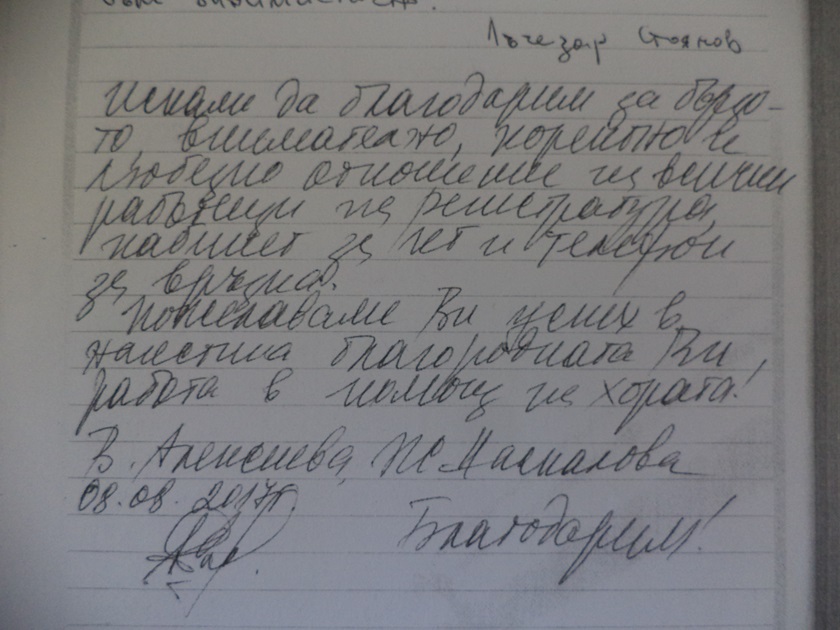 Лъчезар Стоянов
Искаме да благодарим за бързо-
то, внимателно, коректно и
любезно отношение на всички
работещи на регистратура,
кабинет за и телефон
за връзка.
Пожелаваме Ви успех в
наистина благородната Ви
работа в помощ на хората!
В. Алексиева,
08.08.2017г
Благодарим!